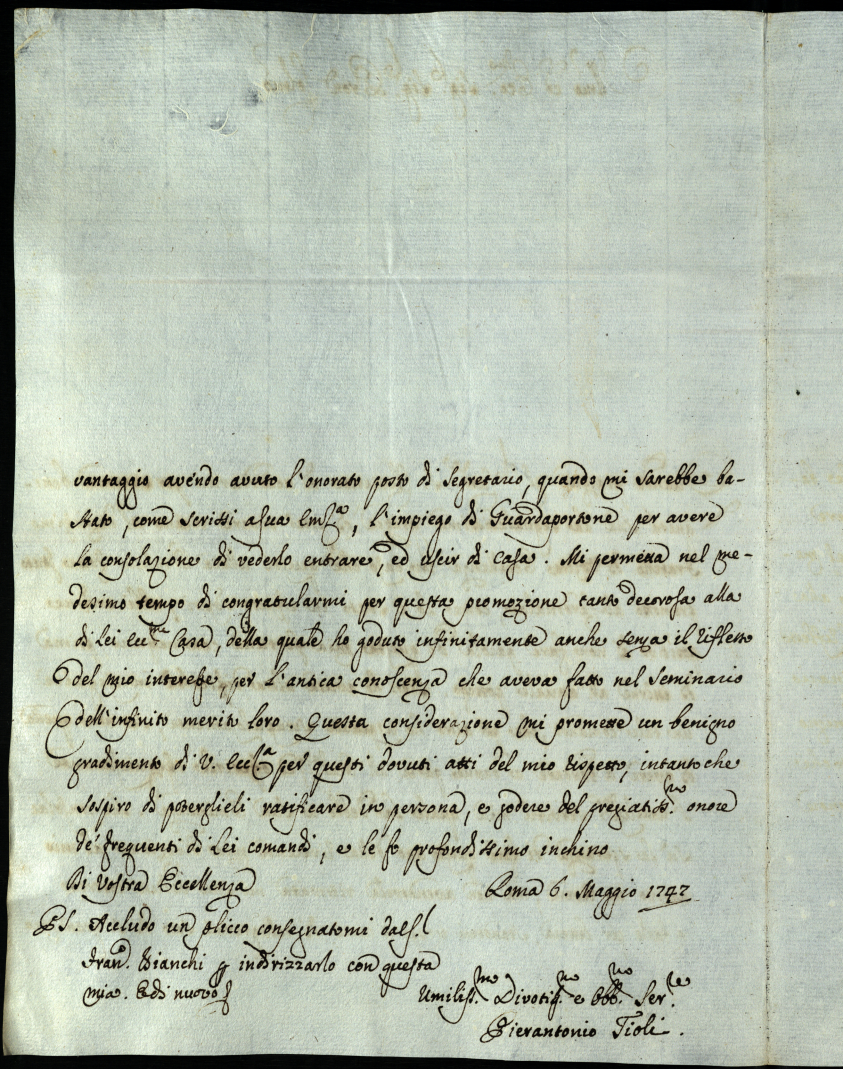 vantaggio avendo avuto l'onorato posto di Segretario, quando mi sarebbe ba-
stato, come scrissi a sua Em.za, l'impiego di Guardaportone per avere
la consolazione di vederlo entrare, ed uscir di Casa. Mi permetta nel me-
desimo tempo di congratularmi per questa promozione tanto decorosa alla
di Lei Ecc.ma Casa, della quale ho goduto infinitamente anche senza il riflesso
del mio interesse, per l'antica conoscenza che aveva fatto nel Seminario
dell'infinito merito loro. Questa considerazione mi promette un benigno
gradimento di V. Ecc.za per questi dovuti atti del mio rispetto, intanto che
sospiro di poterglieli ratificare in persona, e godere del pregiatiss.mo onore
de' frequenti di Lei comandi, e le fo profondissimo inchino
Di Vostra Eccellenza
Roma 6. Maggio 1747
PS. Accludo un plico consegnatomi dal S.
Fran. Bianchi p indirizzarlo con questa
mia. E di nuovo
Umiliss.mo Divotis.mo e Obb.mo Ser.re
Pierantonio Tioli.